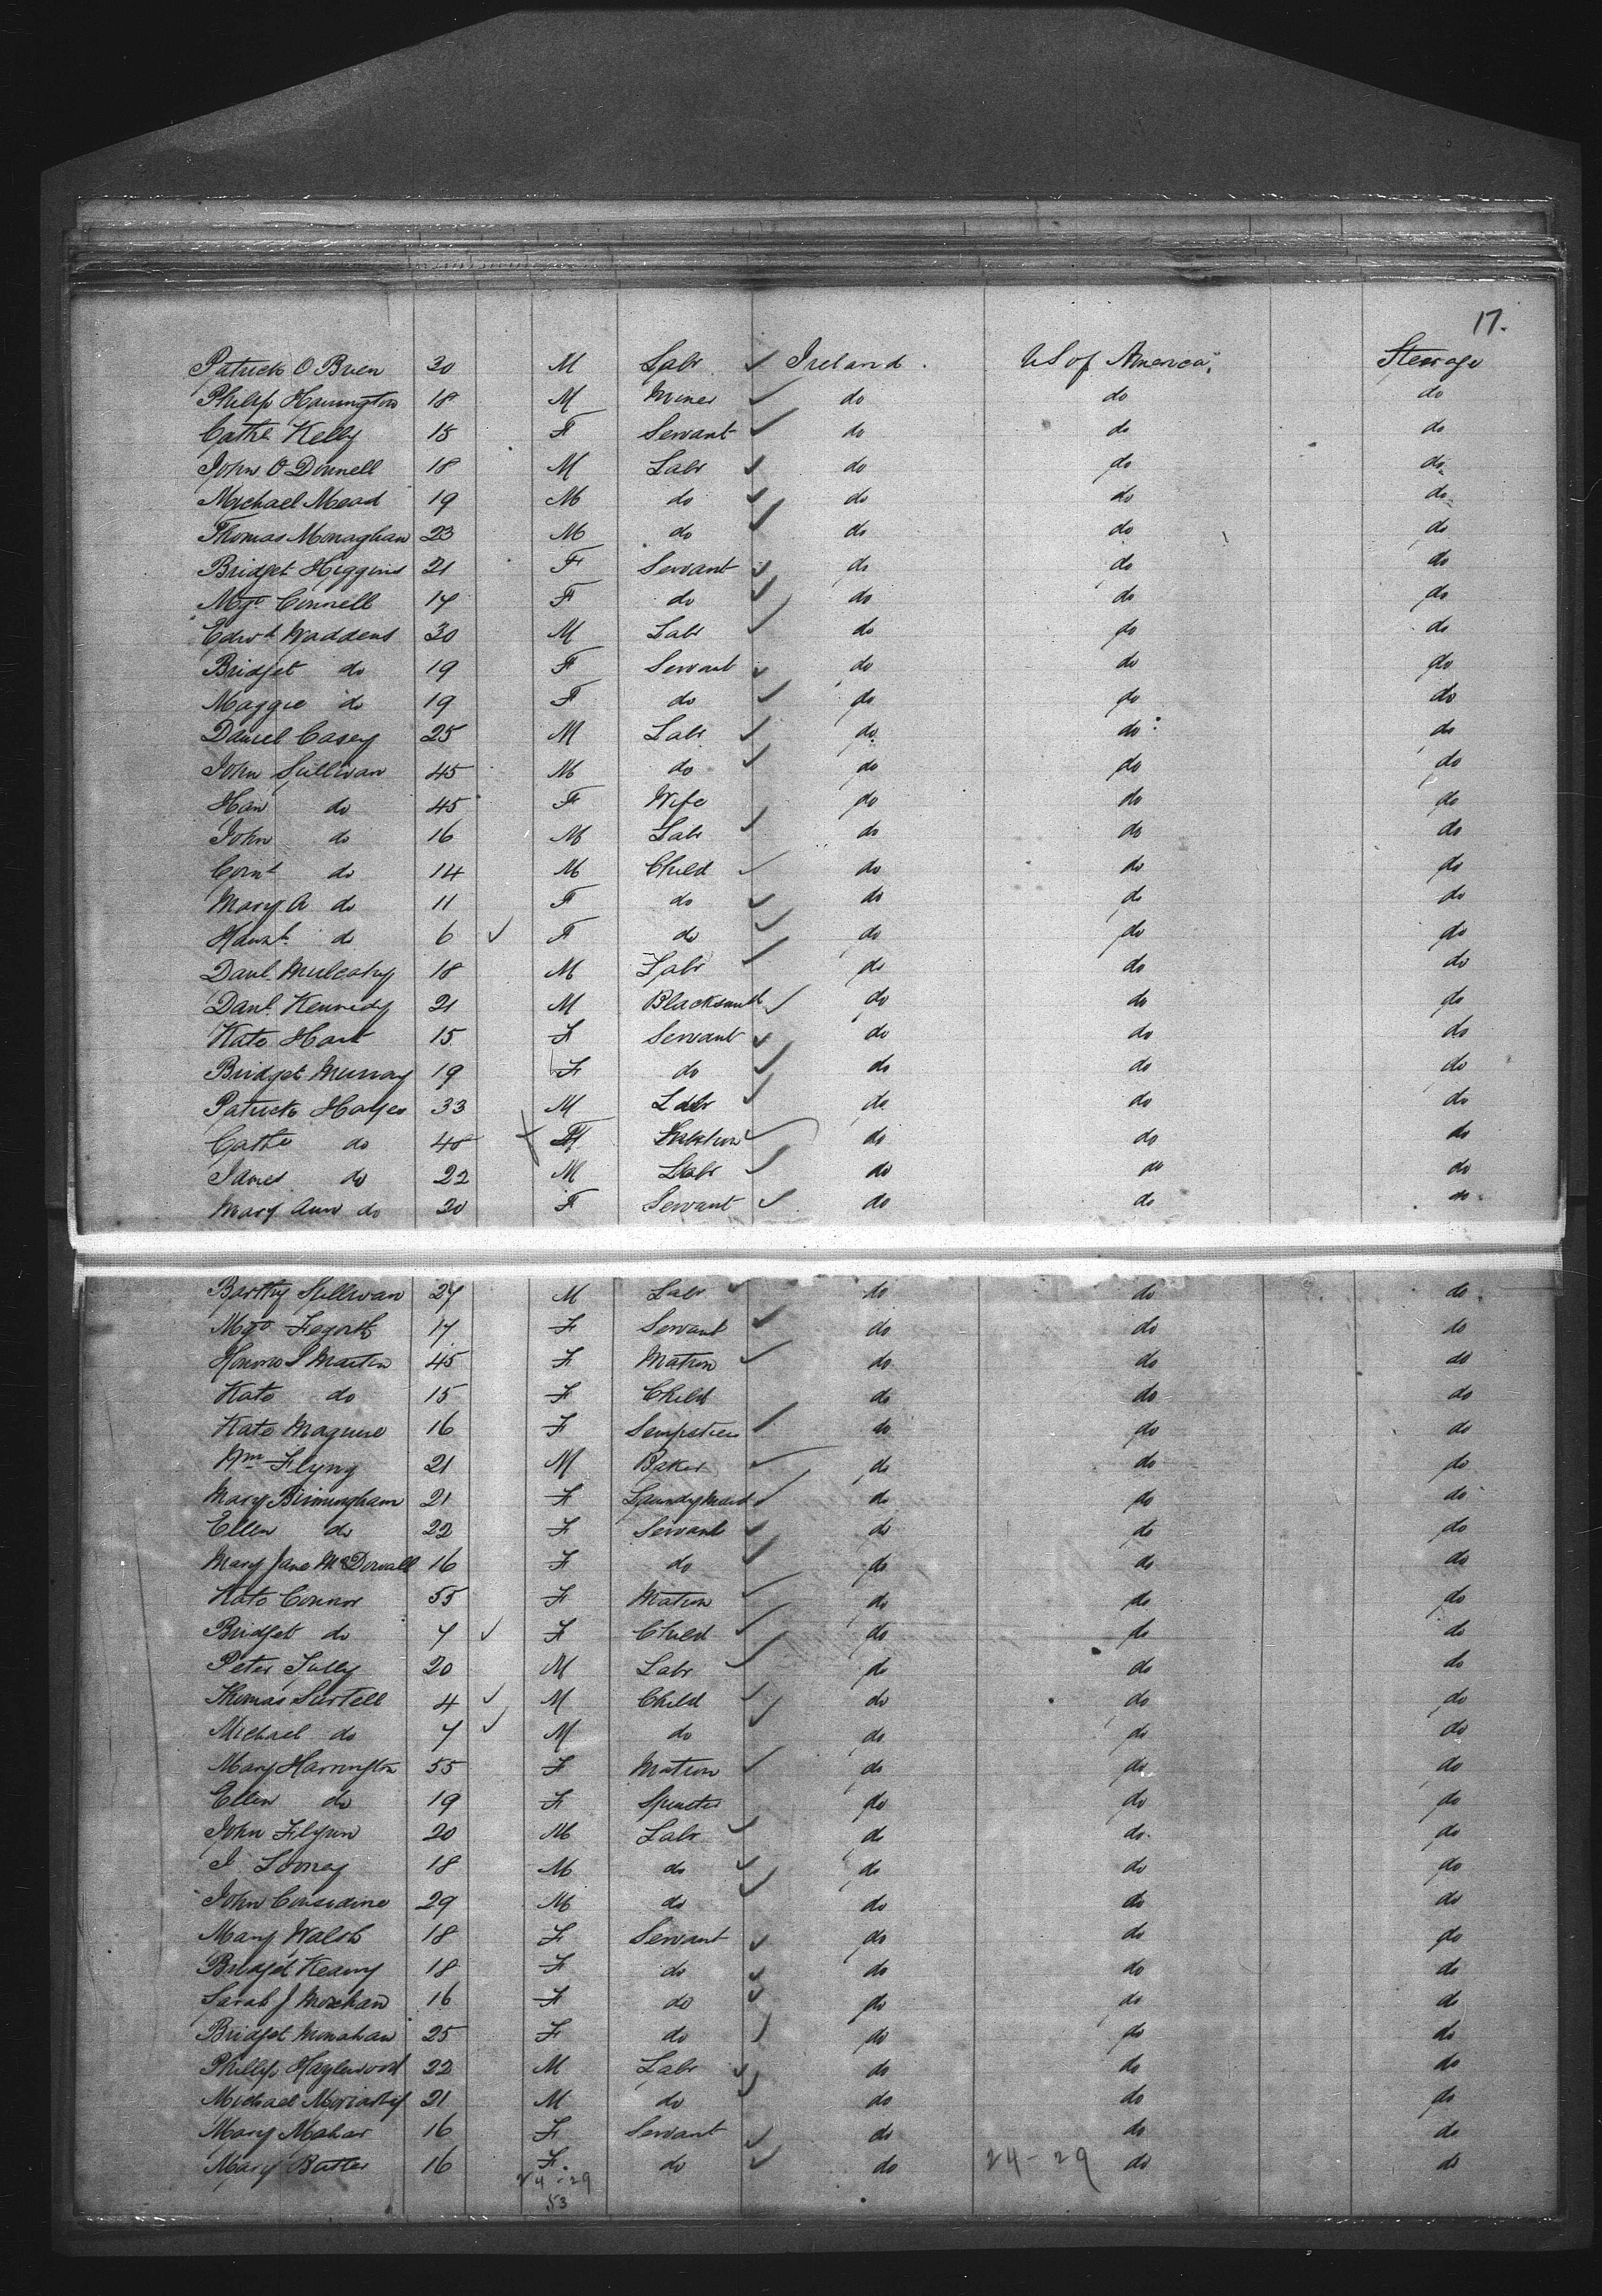 17.
Patrick O Brien 30 M Labr Ireland. US of America Steerage
Philip Harrington 18 M Miner do do do
Cathe Kelly 15 F Servant do do do
John O Donnell 18 M Labr do do do
Michael Mead 19 M do do do do
Thomas Monaghan 23 M do do do do
Bridget Higgins 21 F Servant do do do
Mgt Connell 17 F do do do do
Edwd Waddens 30 M Labr do do do
Bridget do 19 F Servant do do do
Maggie do 19 F do do do do
Daniel Casey 25 M Labr do do do
John Sullivan 45 M do do do do
Han do 45 F Wife do do do
John do 16 M Labr do do do
Cornl do 14 M Child do do do
Mary A do 11 F do do do do
do 6 F do do do do
Danl Mulcahy 18 M Labr do do do
Danl Kennedy 21 M Blacksmith do do do
Kate Hart 15 F Servant do do do
Bridget Murray 19 F do do do do
Patrick Hayes 33 M Labr do do do
Cathe do F Matron do do do
James do 22 M Labr do do do
Mary Ann do 20 F Servant do do do
Barthy Sullivan 27 M Labr do do do
Mgt 17 F Servant do do do
Martin 45 F Matron do do do
Kate do 15 F Child do do do
Kate Maguire 16 F Sempstress do do do
Wm Flyng 21 M Baker do do do
Mary Birmingham 21 F Laundy Maid do do do
Ellen do 22 F Servant do do do
Mary Jane 16 F do do do do
Kate Connor 55 F Matron do do do
Bridget do 7 F Child do do do
Peter Tully 20 M Labr do do do
Thomas Surtell 4 M Child do do do
Michael do 7 M do do do do
Mary Harrington 55 F Matron do do do
Ellen do 19 F Spinster do do do
John Flynn 20 M Labr do do do
J Looney 18 M do do do do
John Considine 29 M do do do do
Mary Walsh 18 F Servant do do do
Bridget Keany 18 F do do do do
Sarah J 16 F do do do do
Bridget Monahan 25 F do do do do
Phillip 22 M Labr do do do
Michael Moriarty 21 M do do do do
Mary Mahar 16 F Servant do do do
Mary Butler 16 F. do do 24-29 do do
24-29
53